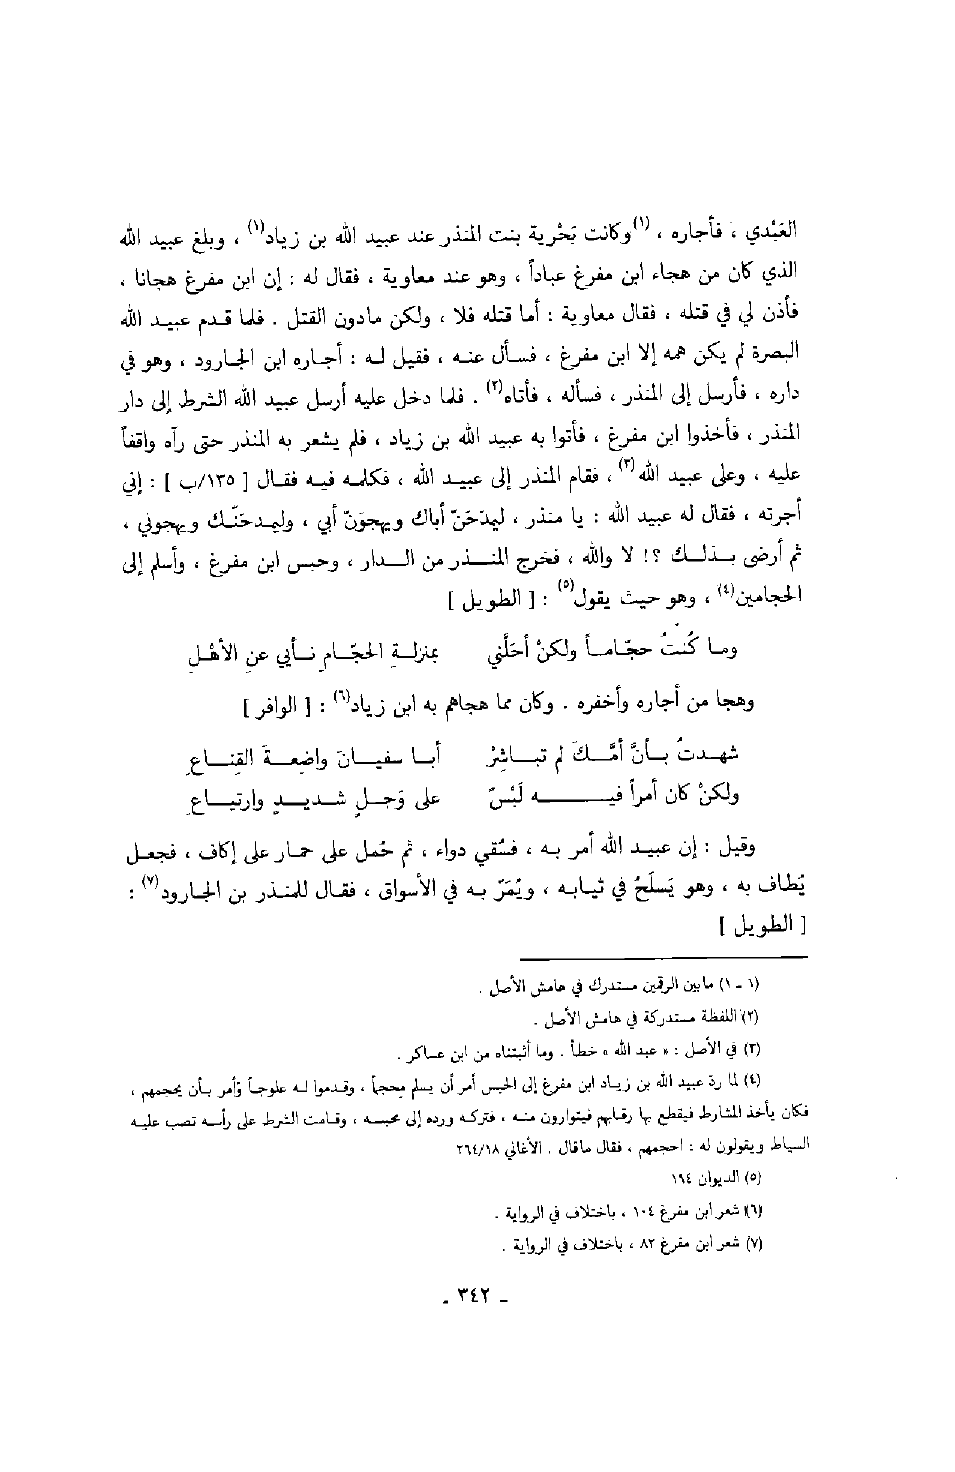 العَبْدي ، فأجاره ، (١)وكانت بَحْرية بنت المنذر عند عبيد الله بن زياد(١) ، وبلغ عبيد الله
الذي كان من هجاء ابن مفرغ عباداً ، وهو عند معاوية ، فقال له : إن ابن مفرغ هجانا ،
فأذن لي في قتله ، فقال معاوية : أما قتله فلا ، ولكن مادون القتل . فلما قدم عبيد الله
البصرة لم يكن همه إلا ابن مفرغ ، فسأل عنه ، فقيل له : أجاره ابن الجارود ، وهو في
داره ، فأرسل إلى المنذر ، فسأله ، فأتاه(٢) . فلما دخل عليه أرسل عبيد الله الشرط إلى دار
المنذر ، فأخذوا ابن مفرغ ، فأتوا به عبيد الله بن زياد ، فلم يشعر به المنذر حتى رآه واقفاً
عليه ، وعلى عبيد الله(٣) ، فقام المنذر إلى عبيد الله ، فكلمه فيه فقال [ ١٣٥/ب ] : إني
أجرته ، فقال له عبيد الله : يا منذر ، ليمدَحَنّ أباك ويهجوَنّ أبي ، وليمدحَنّك ويهجوني ،
ثم أرضى بذلك ؟! لا والله ، فخرج المنذر من الدار ، وحبس ابن مفرغ ، وأسلم إلى
الحجامين(٤) ، وهو حيث يقول(٥) : [ الطويل ]
وما كُنتُ حجّاماً ولكنْ أحَلَّني بمنزلةِ الحجّامِ نأيي عنِ الأهْلِ
وهجا من أجاره وأخفره . وكان مما هجاهم به ابن زياد(٦) : [ الوافر ]
شهدتُ بأنَّ أمَّكَ لم تباشِرْ أبا سفيانَ واضِعةَ القِناعِ
ولكنْ كان أمراً فيه لَبْسٌ على وَجَلٍ شديدٍ وارتياعِ
وقيل : إن عبيد الله أمر به ، فسُقي دواء ، ثم حُمل على حمار على إكاف ، فجعل
يُطاف به ، وهو يَسلَحُ في ثيابه ، ويُمَرّ به في الأسواق ، فقال للمنذر بن الجارود(٧) :
[ الطويل ]
(١ - ١) مابين الرقمين مستدرك في هامش الأصل .
(٢) اللفظة مستدركة في هامش الأصل .
(٣) في الأصل : « عبد الله » خطأ . وما أثبتناه من ابن عساكر .
(٤) لما ردّ عبيد الله بن زياد ابن مفرغ إلى الحبس أمر أن يسلم محجماً ، وقدموا له علوجاً وأمر بأن يحجمهم ،
فكان يأخذ المشارط فيقطع بها رقابهم فيتوارون منه ، فتركه ورده إلى محبسه ، وقامت الشرط على رأسه تصب عليه
السياط ويقولون له : احجمهم ، فقال ماقال . الأغاني ٢٦٤/١٨
(٥) الديوان ١٩٤
(٦) شعر ابن مفرغ ١٠٤ ، باختلاف في الرواية .
(٧) شعر ابن مفرغ ٨٢ ، باختلاف في الرواية .
- ٣٤٢ -